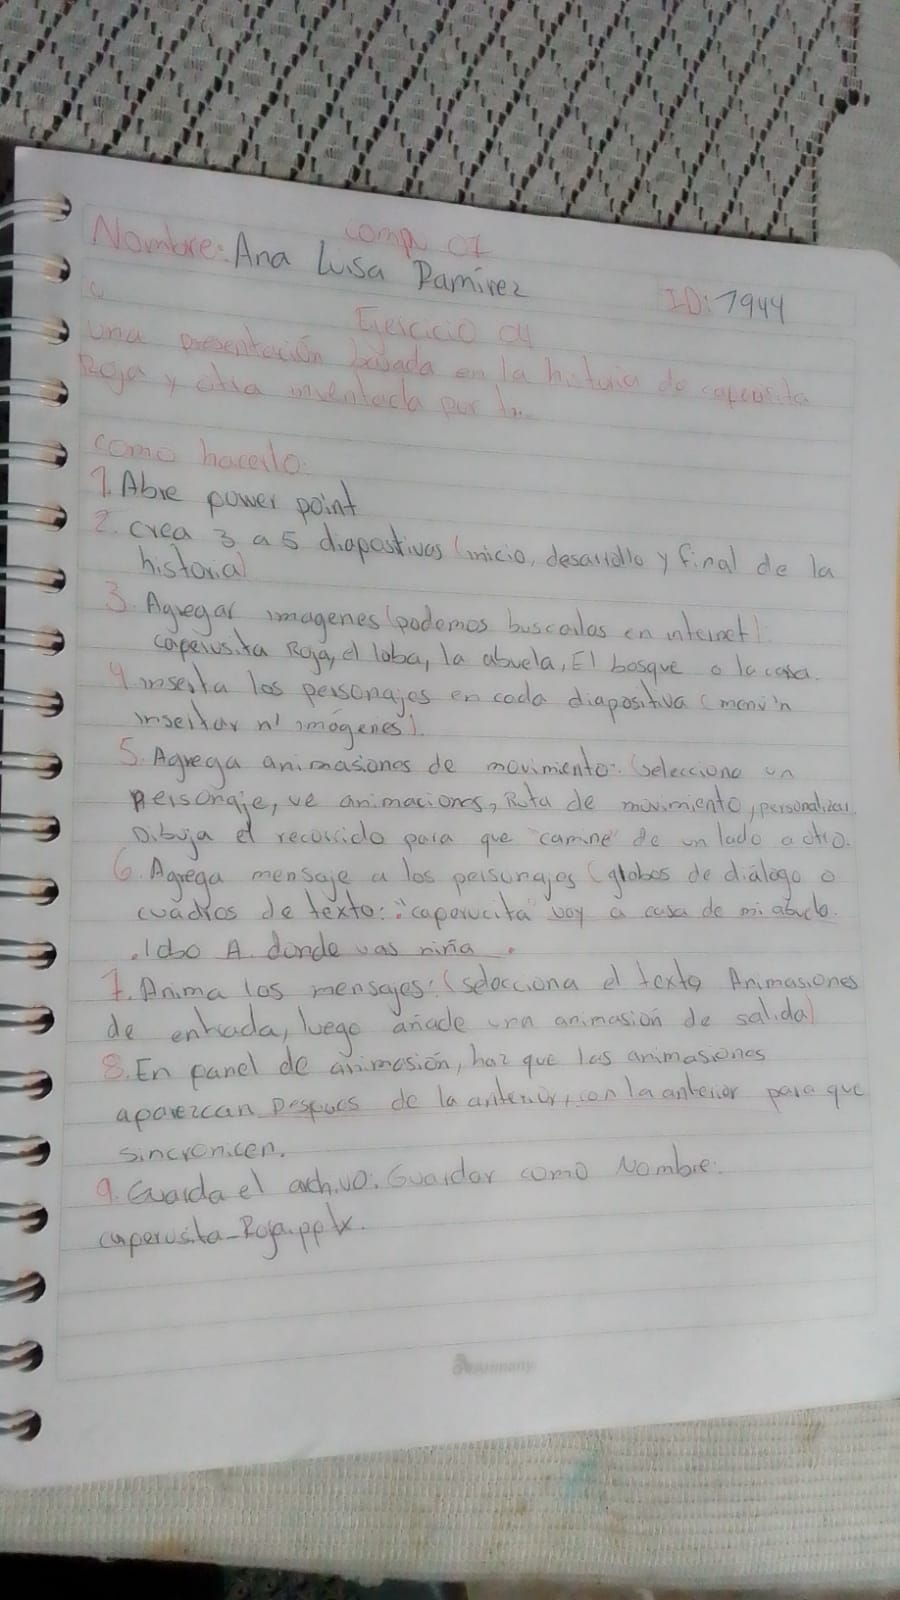 compu 01
Nombre: Ana Luisa Ramirez
ID: 7944
Ejercicio 04
una presentación basada en la historia de caperusita
Roja y otra inventada por tu.
como hacerlo:
1. Abre power point
2. crea 3 a 5 diapositivas (inicio, desarrollo y final de la
historia)
3. Agregar imagenes (podemos buscarlas en internet)
caperusita Roja, el loba, la abuela, El bosque o la casa.
4 inserta los personajes en cada diapositiva (menú
insertar imágenes).
5. Agrega animasiones de movimiento: (selecciona un
personaje, ve animaciones, Ruta de movimiento, personalizar
Dibuja el recorrido para que "camine" de un lado a otro.
6. Agrega mensaje a los personajes (globos de diálogo o
cuadros de texto: "caperucita" voy a casa de mi abuela.
.lobo A. donde vas niña.
7. Anima los mensajes: (selecciona el texto Animasiones
de entrada, luego añade una animasión de salida)
8. En panel de animasión, haz que las animasiones
aparezcan Despues de la anterior, con la anterior para que
sincronicen.
9. Guarda el archivo: Guardar como Nombre:
caperusita_Roja.pptx.